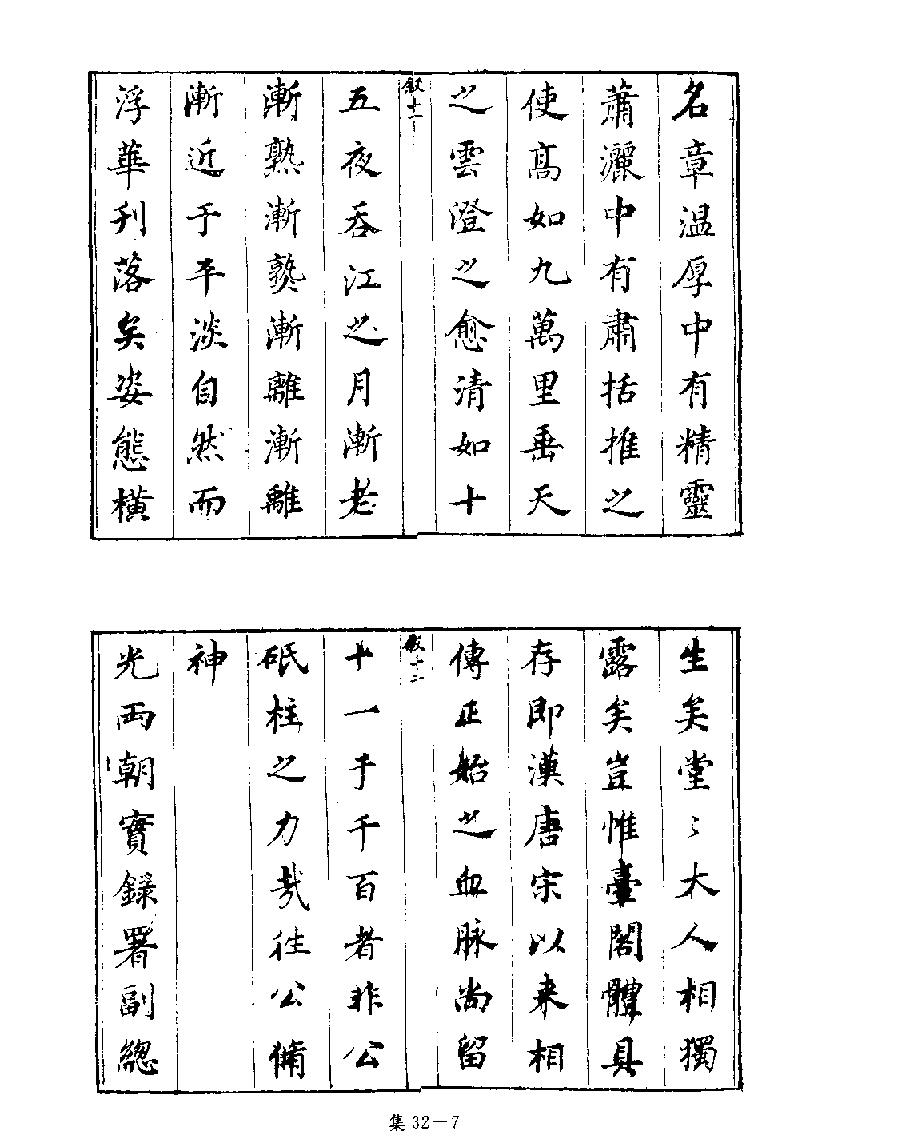 名章温厚中有精靈
蕭灑中有肅括推之
使高如九萬里垂天
之雲澄之愈清如十
叙十一
五夜吞江之月漸老
漸熟漸熟漸離漸離
漸近于平淡自然而
浮華刋落矣姿態橫
生矣堂〻大人相獨
露矣豈惟臺閣體具
存即漢唐宋以来相
傳正始之血脉尚留
叙十二
十一于千百者非公
砥柱之力㢤往公俻
神
光两朝實錄署副總
集 32－7